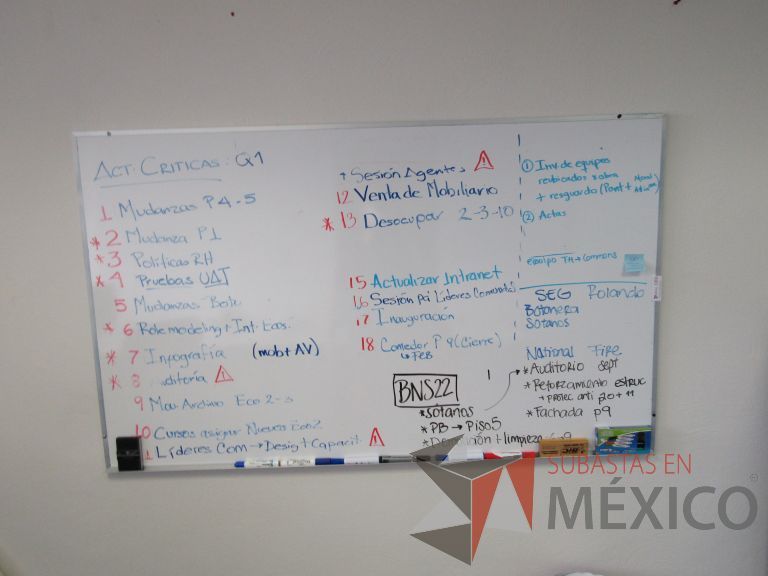 ACT. CRITICAS: Q1
1 Mudanzas P4-5
* 2 Mudanza P1
* 3 Políticas RH
* 4 Pruebas UAT
5 Mudanzas
* 6 Role modeling + Int.
* 7 Infografía (mob + AV)
* 8 auditoría
9 Mov. Archivo Eco 2-3
10 Cursos asignar Nuevos Eco2
Líderes Com → Desig + Capacit.
+ Sesión Agentes
12 Venta de Mobiliario
* 13 Desocupar 2-3-10
15 Actualizar Intranet
16 Sesión Líderes
17 Inauguración
18 Comedor P9 (Cierre)
↳ FEB
BNS22
* Sótanos
* PB → Piso 5
+ limpieza
① Inv. de equipos
sobra
+ resguardo
② Actas
equipo TH → Commons
SEG Rolando
Botonera
Sótanos
National Fire
* Auditorio sept
* Reforzamiento estruc
+ protec anti p10 + 11
* Fachada p9
BIC
SUBASTAS EN
MÉXICO
©